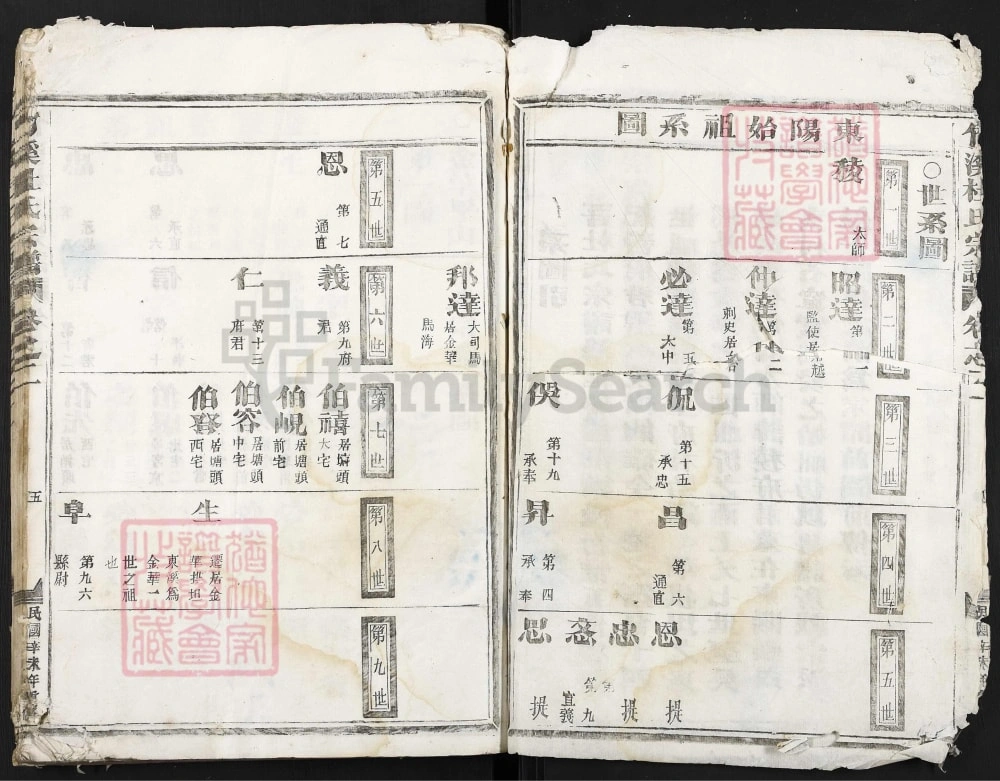 〇世系圖
東陽始祖系圖
第一世
稜
太師
第二世
昭達
第一
監使居吳越
仲達
刺史居台
必達
第五
太中
邦達
大司馬
居金華
馬海
第三世
侃
第十五
承忠
俁
第十九
承奉
第四世
昌
第六
通直
昇
第四
承奉
第五世
恩
提
忠
提
悆
宣義
思
提
第五世
恩
第七
通直
第六世
義
第九府
君
仁
萬十三
府君
第七世
伯禧
居塘頭
大宅
伯峴
居塘頭
前宅
伯容
居塘頭
中宅
伯琮
居塘頭
西宅
第八世
生
遷居金
華拱坦
東溪為
金華一
世之祖
也
阜
第九六
縣尉
第九世
五
民國辛未年
猶他家
譜學會
藏